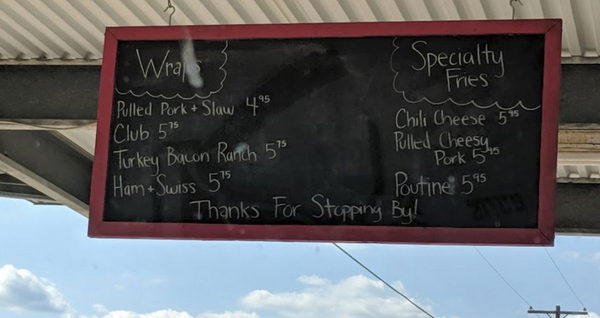 Wraps
Pulled Pork + Slaw 4.95
Club 5.75
Turkey Bacon Ranch 5.75
Ham + Swiss 5.75
Specialty
Fries
Chili Cheese 5.95
Pulled Cheesy
Pork 5.95
Poutine 5.95
Thanks For Stopping By!